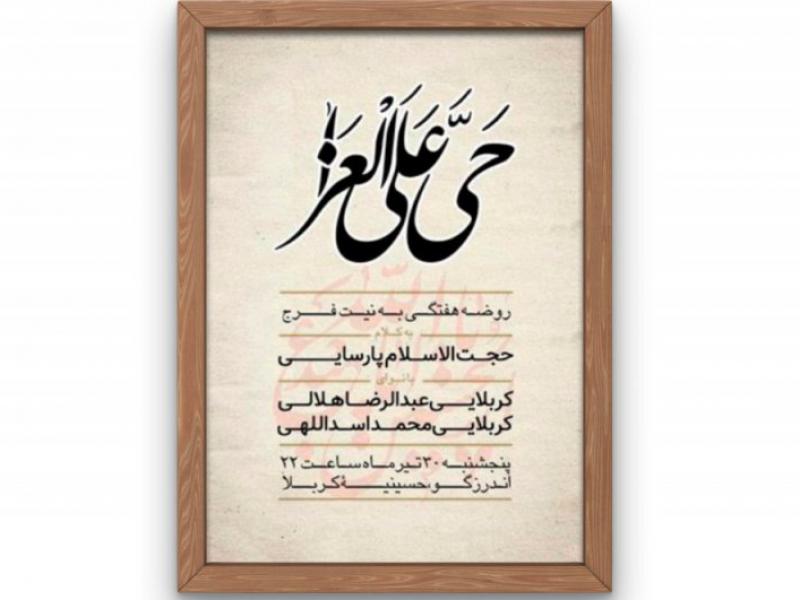 حَیَّ عَلَی الْعَزا
روضه هفتگی به نیت فرج
به کلام
حجت الاسلام پارسایی
بانوای
کربلایی عبدالرضا هلالی
کربلایی محمد اسداللهی
پنجشنبه ۳۰ تیر ماه ساعت ۲۲
اندرزگو، حسینیهٔ کربلا